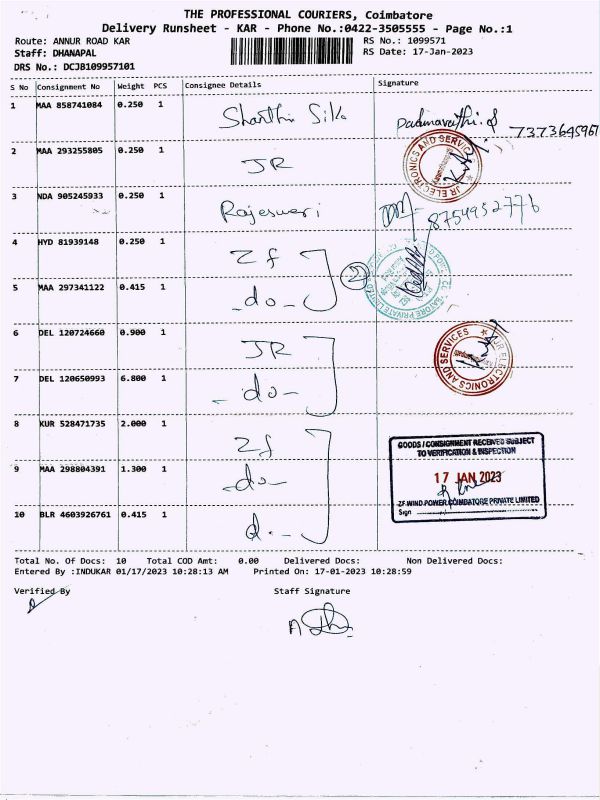 THE PROFESSIONAL COURIERS, Coimbatore
Delivery Runsheet - KAR - Phone No.:0422-3505555 - Page No.:1
Route: ANNUR ROAD KAR RS No.: 1099571
Staff: DHANAPAL RS Date: 17-Jan-2023
DRS No.: DCJB109957101
S No Consignment No Weight PCS Consignee Details Signature
1 MAA 858741084 0.250 1 Shanthi Padmavathi.S 7373645961
2 MAA 293255805 0.250 1 JR JR ELECTRONICS AND SERVICES
3 NDA 905245933 0.250 1 Rajeswari 8754952776
4 HYD 81939148 0.250 1 Zf 2
5 MAA 297341122 0.415 1 -do-
6 DEL 120724660 0.900 1 JR JR ELECTRONICS AND SERVICES
7 DEL 120650993 6.800 1 -do-
8 KUR 528471735 2.000 1 Zf
9 MAA 298804391 1.300 1 -do-
10 BLR 4603926761 0.415 1
GOODS / CONSIGNMENT RECEIVED SUBJECT
TO VERIFICATION & INSPECTION
17 JAN 2023
ZF WIND POWER COIMBATORE PRIVATE LIMITED
Sign
Total No. Of Docs: 10 Total COD Amt: 0.00 Delivered Docs: Non Delivered Docs:
Entered By :INDUKAR 01/17/2023 10:28:13 AM Printed On: 17-01-2023 10:28:59
Verified By Staff Signature